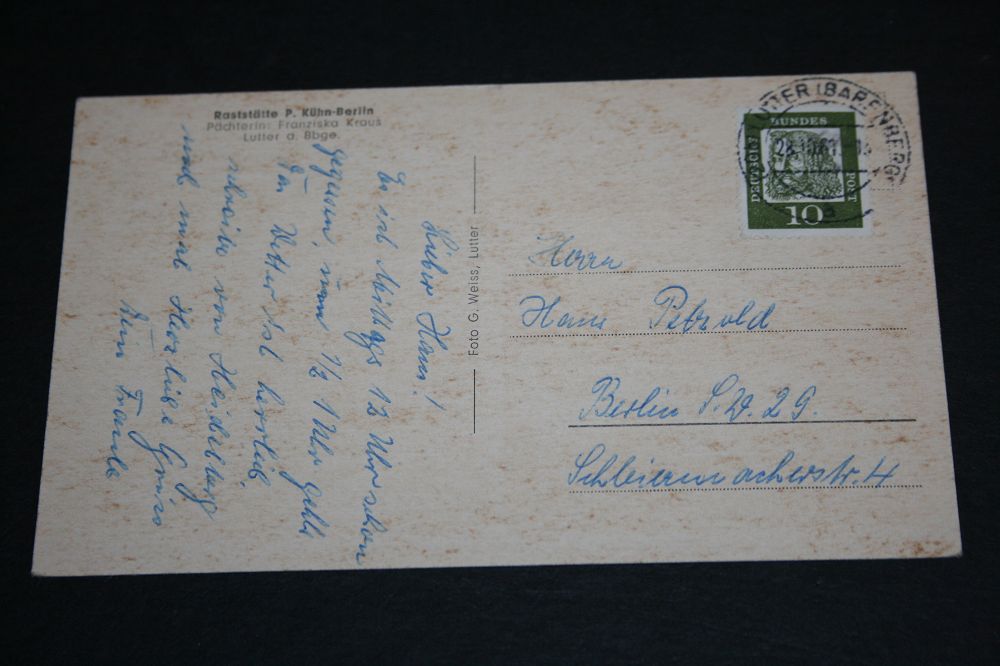 Raststätte P. Kühn-Berlin
Pächterin: Franziska Kraus
Lutter a. Bbge.
Lieber Hans!
Es ist Mittags 12 Uhr schon
gegessen, um ½ 1 Uhr geht
Wetter ist herrlich
schreibe von Heidelberg
noch mal Herzliche Grüße
Foto G. Weiss, Lutter
LUTTER (BARENBERG)
DEUTSCHE BUNDES POST
10
Herrn
Hans Petzold
Berlin S.W. 29.
Schleiermacherstr. 4